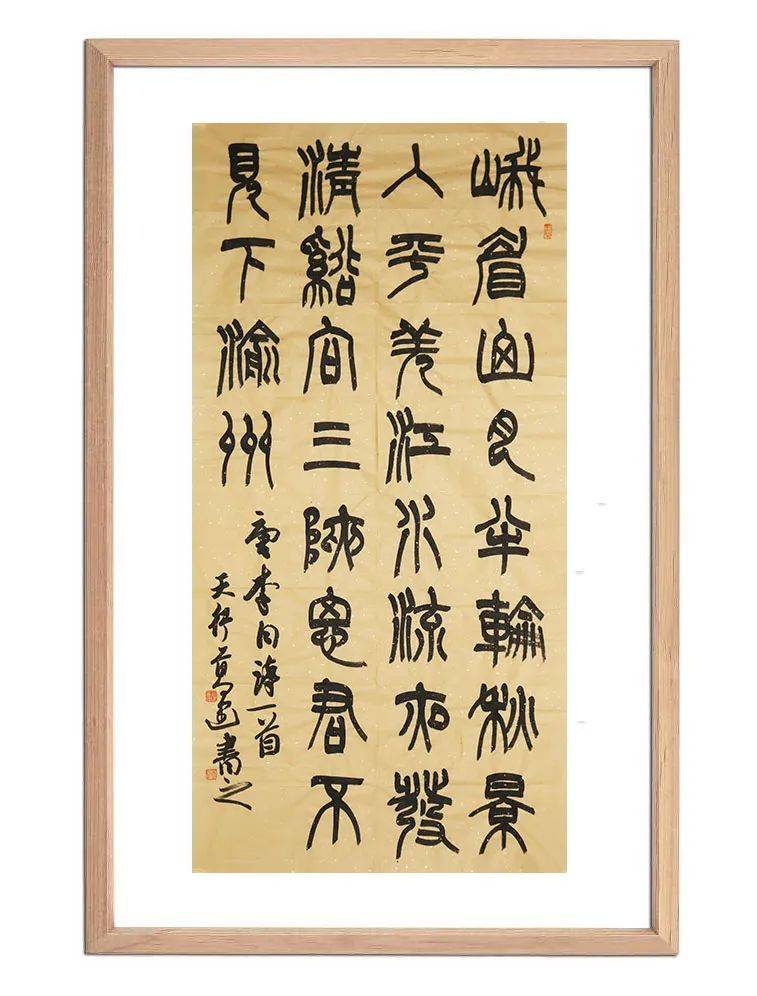 峨眉山月半輪秋景
入平羌江水流夜發
清谿向三陜思君不
見下渝州
唐李白詩一首
天書之